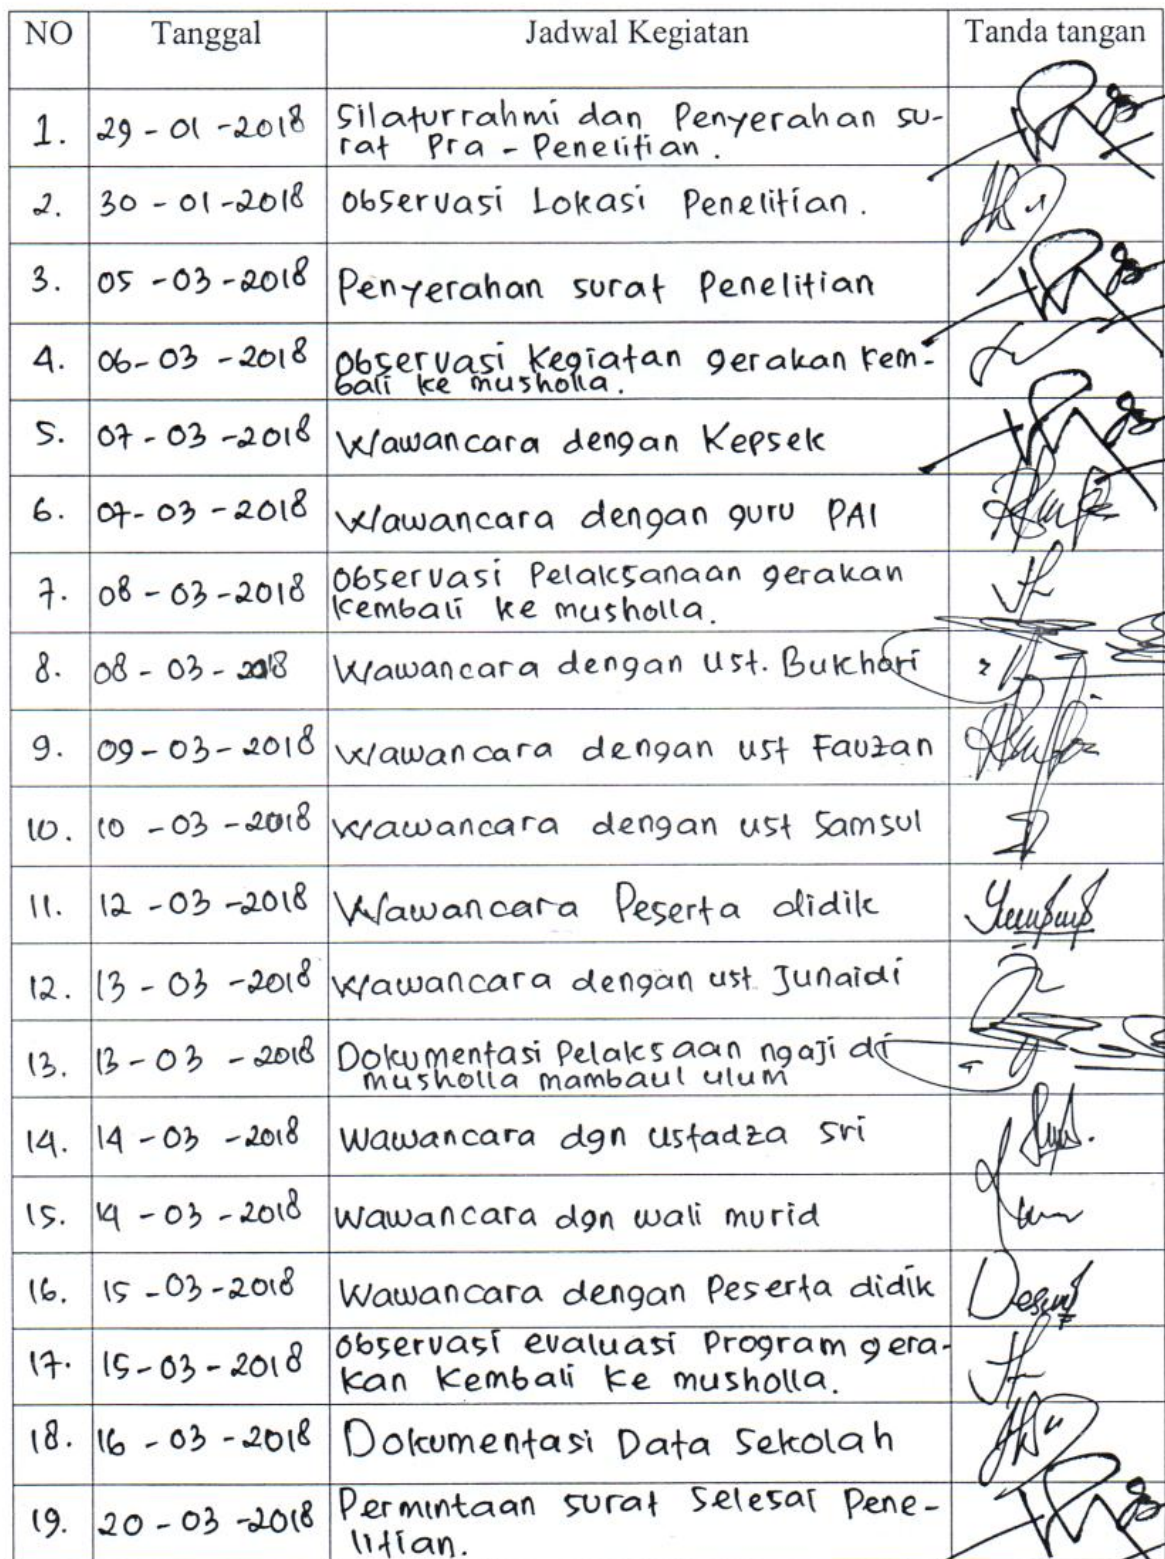 NO Tanggal Jadwal Kegiatan Tanda tangan
1. 29-01-2018 Silaturrahmi dan Penyerahan su-
rat Pra-Penelitian.
2. 30-01-2018 Observasi Lokasi Penelitian.
3. 05-03-2018 Penyerahan surat Penelitian
4. 06-03-2018 Observasi Kegiatan gerakan kem-
bali ke musholla.
5. 07-03-2018 Wawancara dengan Kepsek
6. 07-03-2018 Wawancara dengan guru PAI
7. 08-03-2018 Observasi Pelaksanaan gerakan
kembali ke musholla.
8. 08-03-2018 Wawancara dengan Ust. Bukhori
9. 09-03-2018 Wawancara dengan ust Fauzan
10. 10-03-2018 Wawancara dengan ust Samsul
11. 12-03-2018 Wawancara Peserta didik
12. 13-03-2018 Wawancara dengan ust. Junaidi
13. 13-03-2018 Dokumentasi Pelaksaan ngaji di
musholla mambaul ulum
14. 14-03-2018 Wawancara dgn ustadza sri
15. 14-03-2018 Wawancara dgn wali murid
16. 15-03-2018 Wawancara dengan Peserta didik
17. 15-03-2018 Observasi evaluasi Program gera-
kan Kembali ke musholla.
18. 16-03-2018 Dokumentasi Data Sekolah
19. 20-03-2018 Permintaan surat Selesai Pene-
litian.